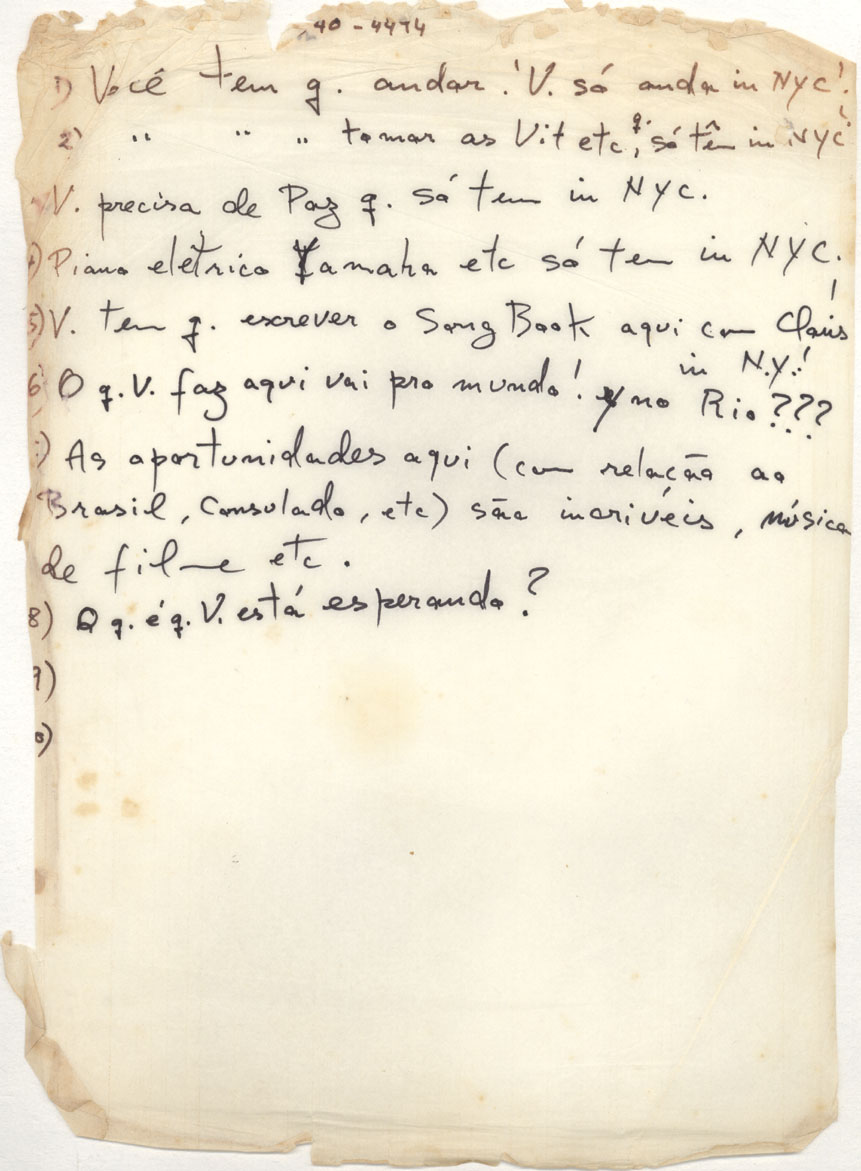 40-4494
1) Você tem q. andar! V. só anda in NYC!
2) " " " tomar as Vit etc, q. só têm in NYC
V. precisa de Paz q. só tem in NYC.
4) Piano elétrico Yamaha etc só tem in NYC.
5) V. tem q. escrever o Song Book aqui com Claus
in N.Y.!
6) O q. V. faz aqui vai pro mundo! no Rio???
7) As oportunidades aqui (com relação ao
Brasil, Consulado, etc) são incrivéis, música
de filme etc.
8) O q. é q. V. está esperando?
9)
10)